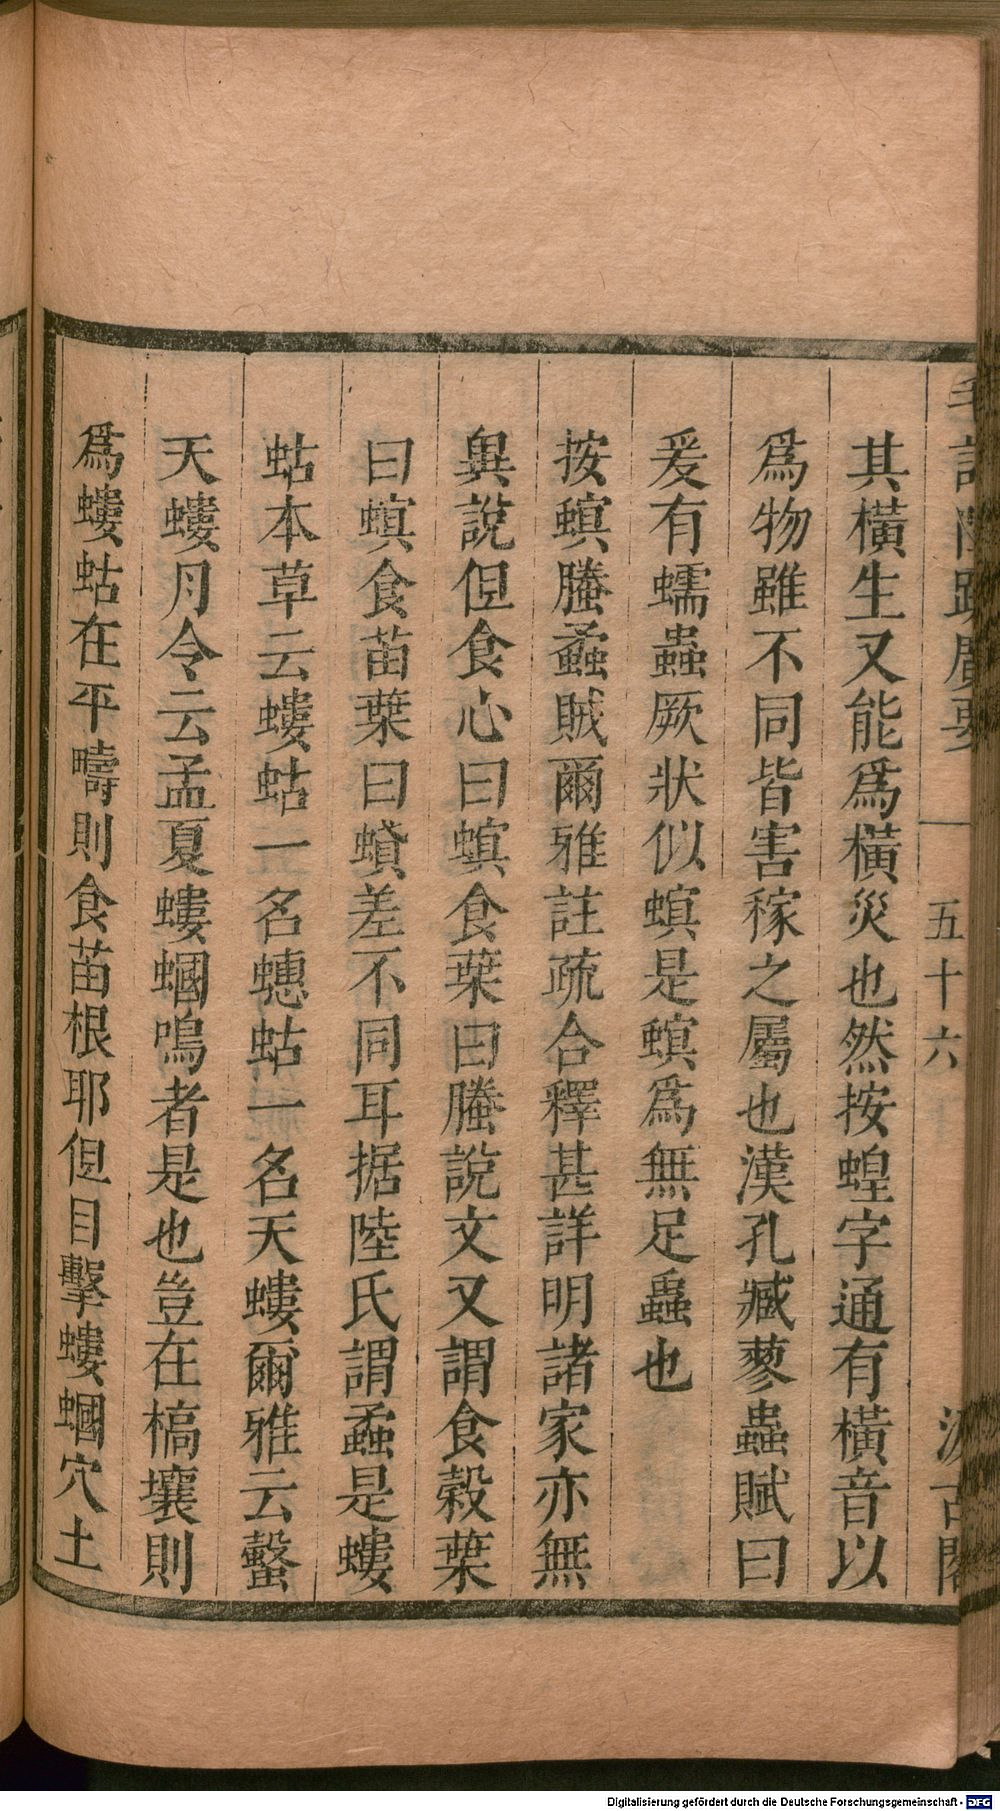 毛詩陸疏廣要
五十六
汲古閣
其橫生又能爲橫災也然按蝗字通有橫音以
爲物雖不同皆害稼之屬也漢孔臧蓼蟲賦曰
爰有蠕蟲厥狀似螟是螟爲無足蟲也
按螟螣蟊賊爾雅註疏合釋甚詳明諸家亦無
異說但食心曰螟食葉曰螣說文又謂食穀葉
曰螟食苗葉曰蟘差不同耳据陸氏謂蟊是螻
蛄本草云螻蛄一名蟪蛄一名天螻爾雅云蟿
天螻月令云孟夏螻蟈鳴者是也豈在槁壤則
爲螻蛄在平疇則食苗根耶但目擊螻蟈穴土
Digitalisierung gefördert durch die Deutsche Forschungsgemeinschaft - DFG